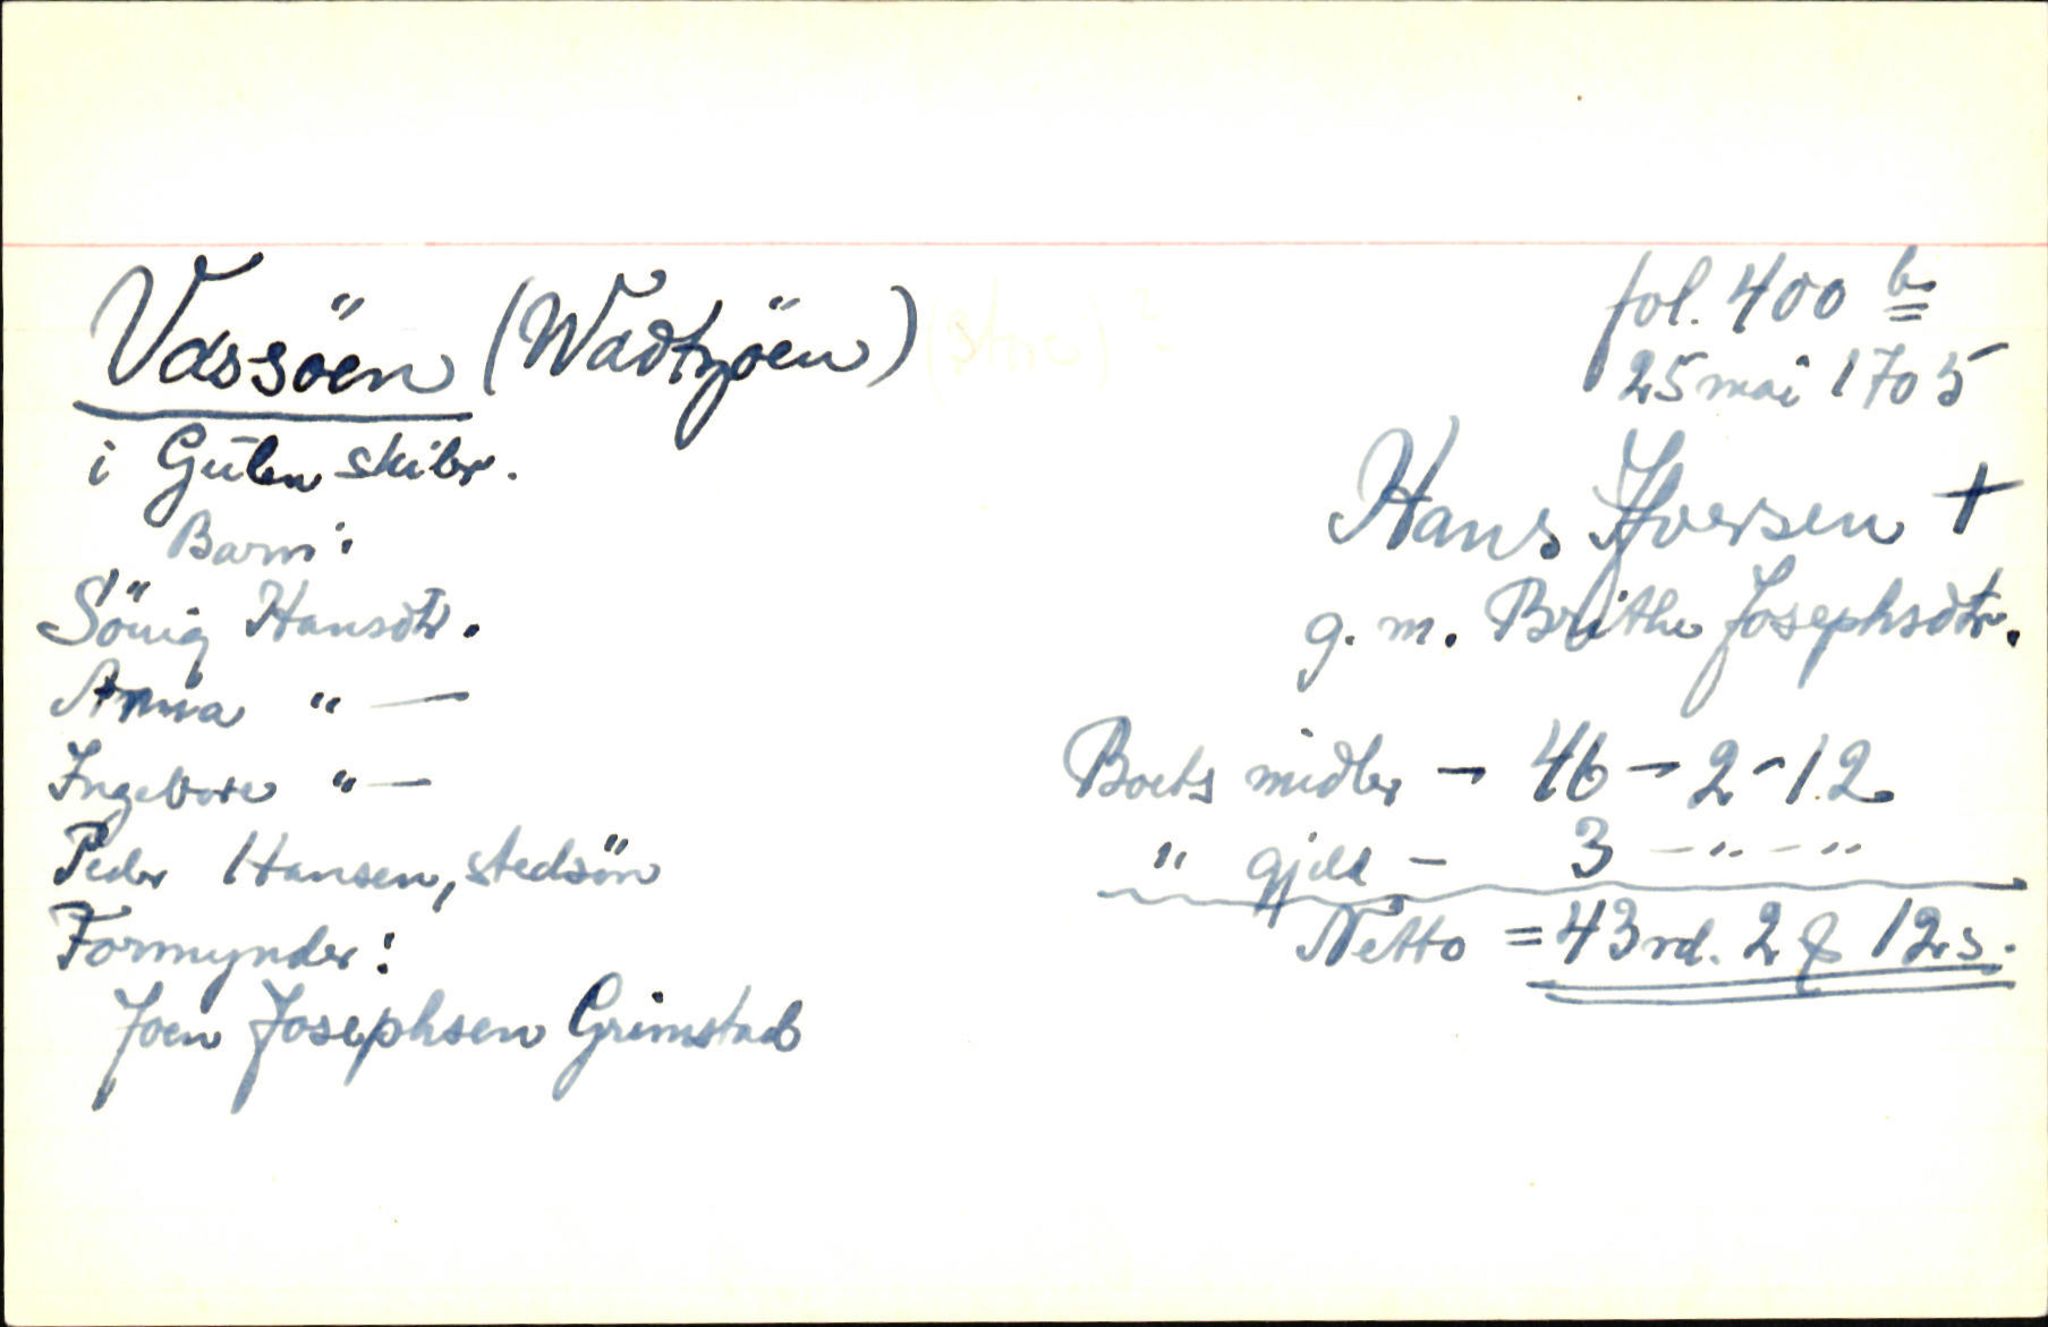 Vassöen (Wadtzöen)
fol. 400 b
25 mai 1705
i Gulen skibr.
Hans Iversen +
g. m. Brithe Josephsdtr.
Barn:
Sönig Hansdtr.
Anna " —
Ingebore " —
Peder Hansen, stedsön
Formynder:
Joen Josephsen Grimstad
Boets midler - 46 - 2 - 12
" gjeld - 3 - " - "
Netto = 43 rd. 2 12 s.